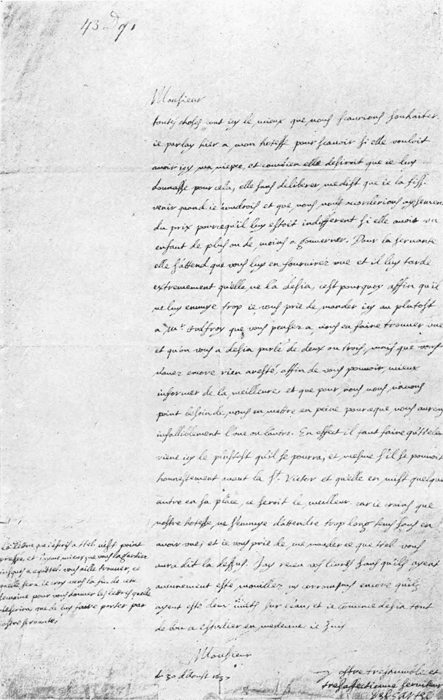 Monsieur
toutes choses vont icy le mieux que nous sçaurions souhaiter.
ie parlay hier a mon hotesse pour sçavoir si elle vouloit
avoir icy ma niepce, et combien elle desiroit que ie luy
donnasse pour cela, elle sans deliberer me dist que ie la fisse
venir quand ie voudrois et que nous nous accorderions aysement
du prix pourcequ'il luy estoit indifferent si elle avoit un
enfant de plus ou de moins a gouverner. Pour la servante
elle s'attend que vous luy en fournirez une et il luy tarde
extremement qu'elle ne l'a desia, c'est pourquoy affin qu'il
ne luy ennuye trop ie vous prie de mander icy au plutost
a que vous pensez a nous en faire trouver une
et qu'on vous a desia parlé de deux ou trois, mais que vous
n'avez encore rien aresté, affin de vous pouvoir mieux
informer de la meilleure et que pour nous nous n'avons
point besoin de nous mettre en peine pource que nous aurons
infalliblement l'une ou l'autre. En effect il faut faire qu'Helene
vienne icy le plustost qu'il se pourra, et mesme s'il se pouvoit
honnestement avant la St. Victor et qu'elle en mist quelque
autre en sa place, ce seroit le meilleur, car ie crains que
nostre hotesse ne s'ennuye d'attendre trop long tems sans en
avoir une, et ie vous prie de me mander ce que Hel. vous
aura dit la dessus. J'ay receu vos livres sans qu'ils ayent
aucunement esté mouillez ny corrompus encore qu'ils
ayent esté deux nuits sur l'eau, et ie commence desia tout
de bon a estudier en medecine. ie suis
Monsieur
le 30 d'Aoust 1637
vostre treshumble et
tresaffectionné serviteur
DESCARTES
La lettre que i'escris a Hel. n'est point
pressée, et i'ayme mieux que vous la gardiez